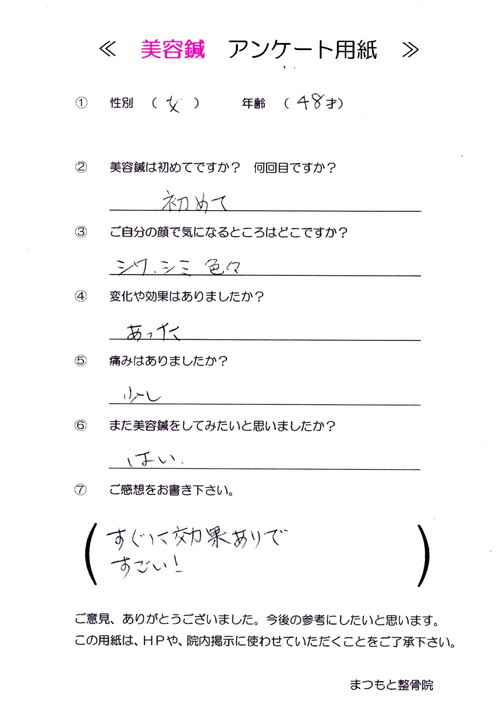 ≪ 美容鍼 アンケート用紙 ≫
① 性別 （ 女 ） 年齢 （ 48才）
② 美容鍼は初めてですか？ 何回目ですか？
初めて
③ ご自分の顔で気になるところはどこですか？
シワ、シミ 色々
④ 変化や効果はありましたか？
あった
⑤ 痛みはありましたか？
少し
⑥ また美容鍼をしてみたいと思いましたか？
はい.
⑦ ご感想をお書き下さい。
すぐに効果ありで
すごい！
ご意見、ありがとうございました。今後の参考にしたいと思います。
この用紙は、ＨＰや、院内掲示に使わせていただくことをご了承下さい。
まつもと整骨院